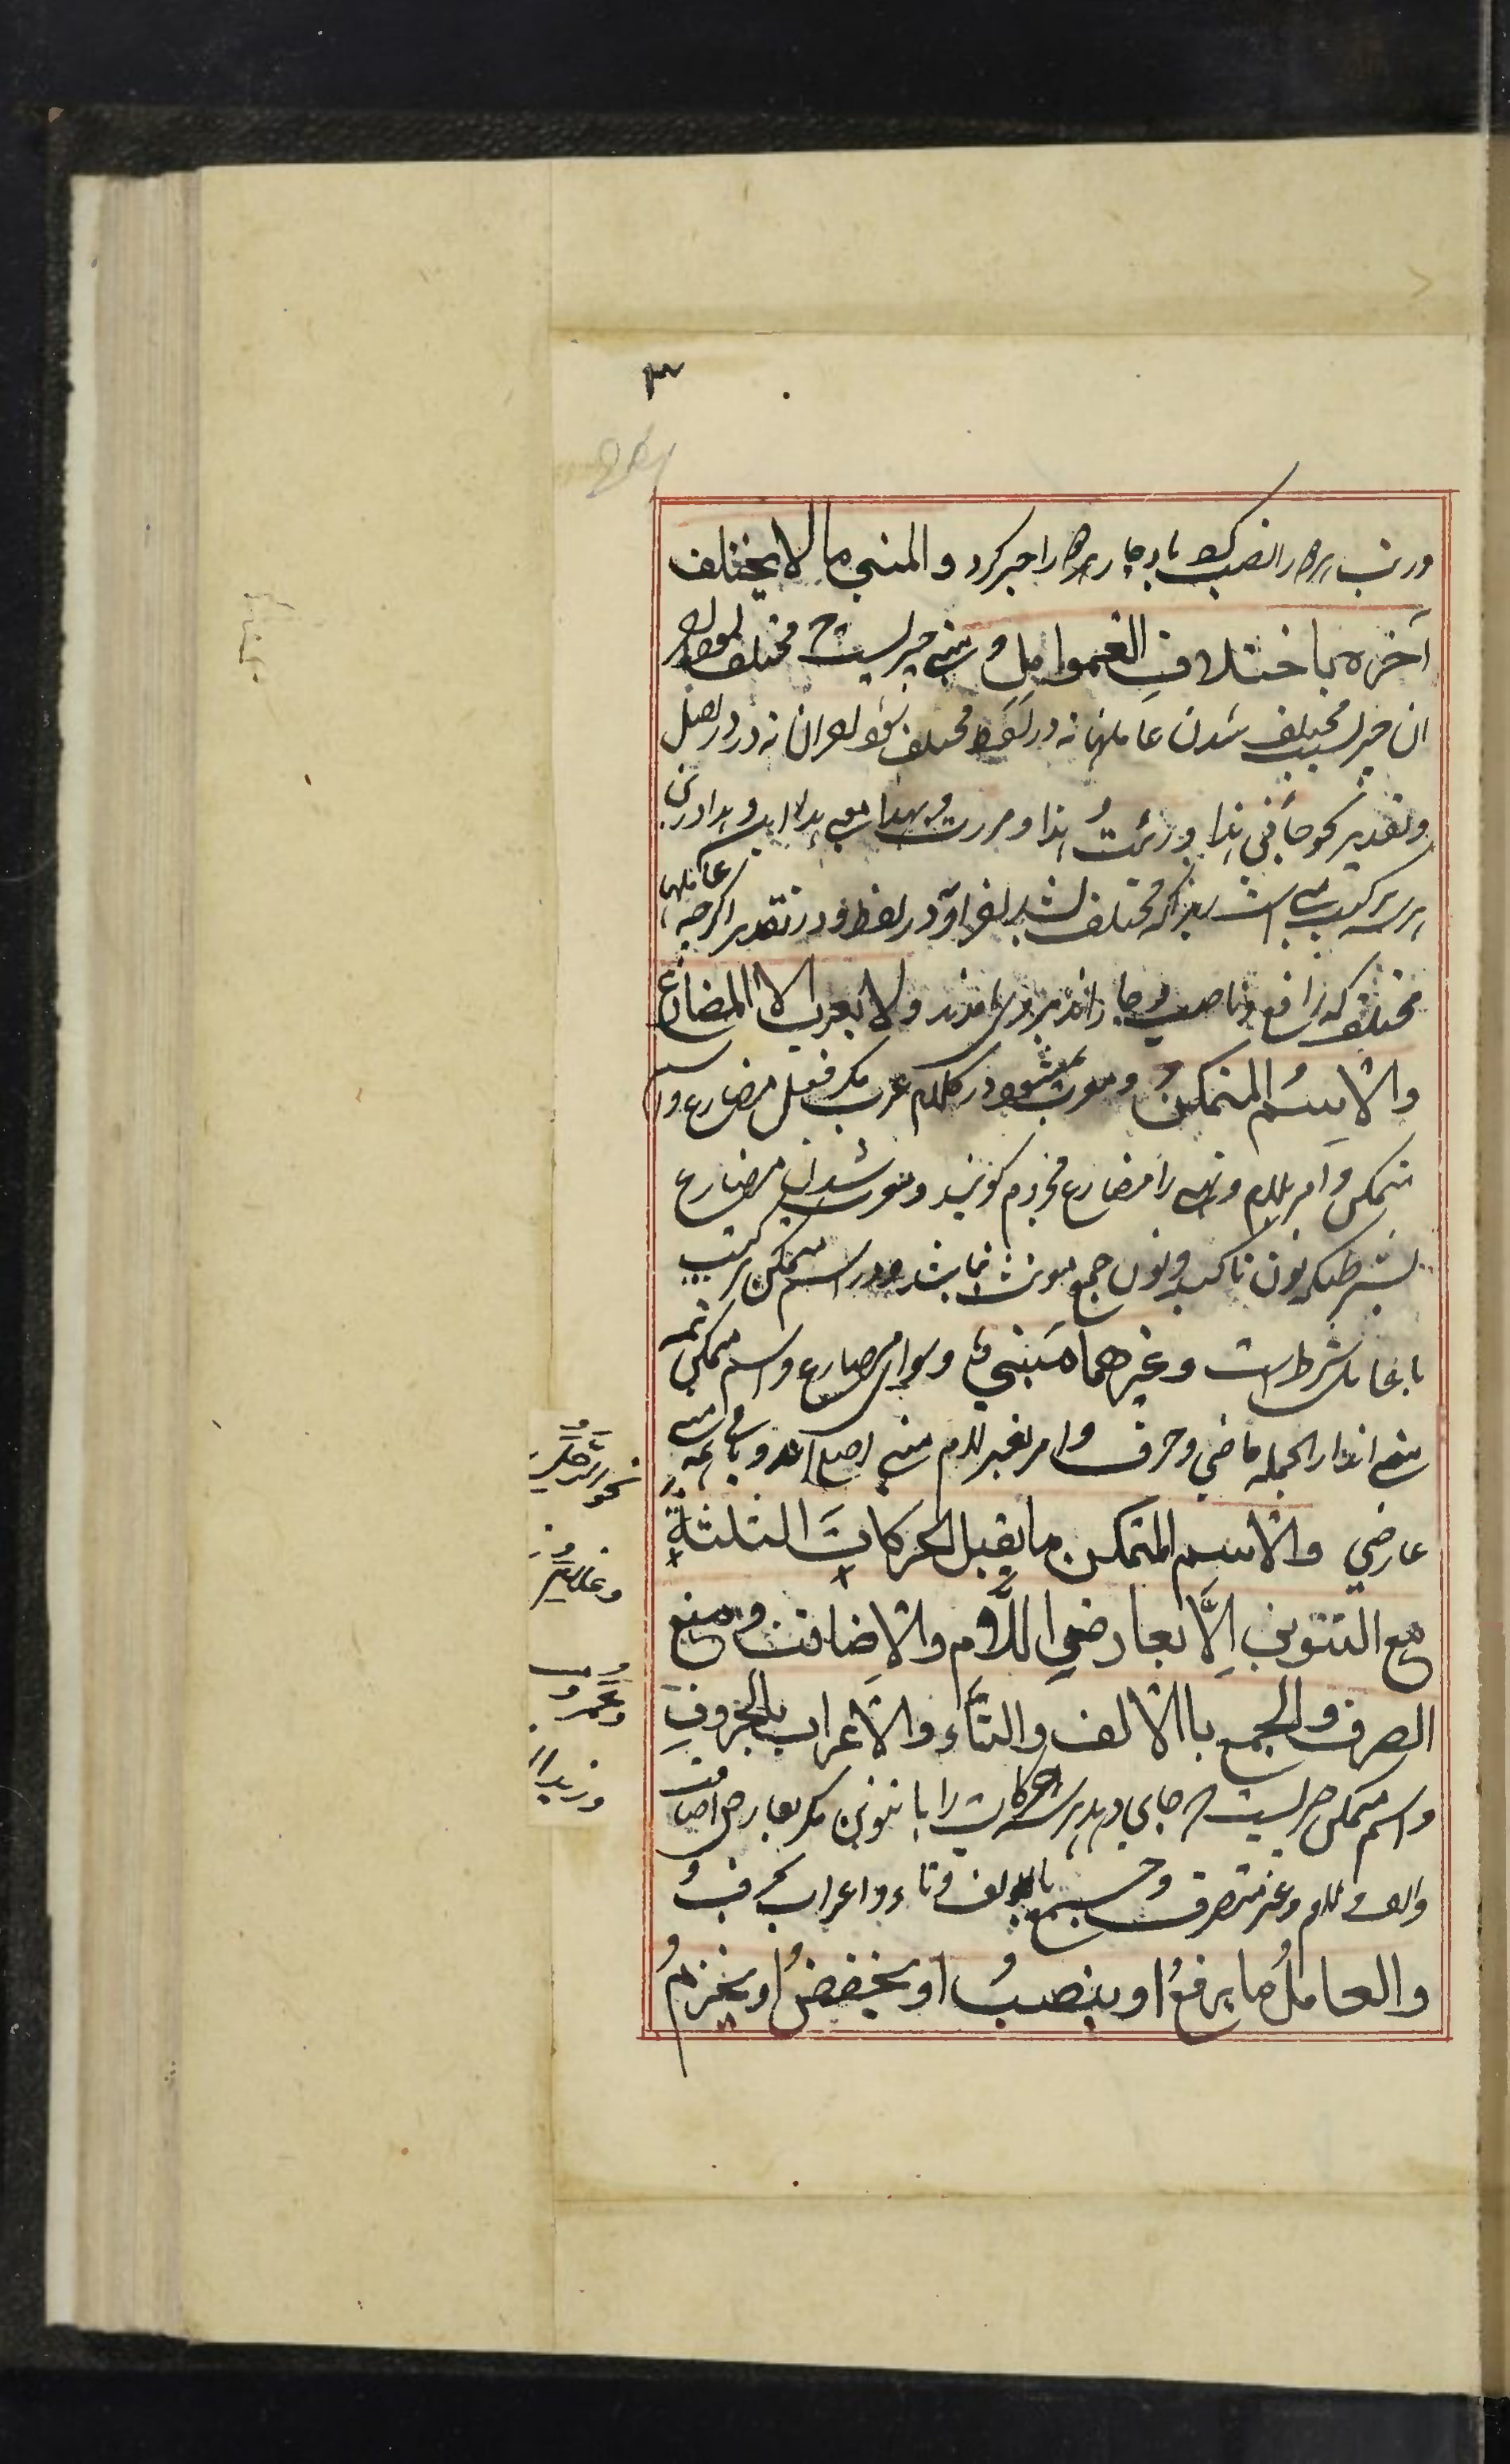 ۳
را نصب کرد با در جار را جر کرد والمبني ما لا يختلف
آخره باختلاف العوامل ومبني چیزیست که مختلف نشود آخر
آن چیز بسبب مختلف شدن عاملها نه در لفظ مختلف شود آخر آن نه در اصل
وتقدیر نحو جائني هذا ورئيت هذا ومررت بهذا
هر سه ترکیب مبنی است زیراکه مختلف نشد آخر او در لفظ و در تقدیر اگرچه عاملها
مختلف که رافع وناصب وجار اند بروی آمدند ولا يعرب الا المضارع
والاسم المتمكن ومعرب نمیشود در کلام عرب مگر فعل مضارع واسم
متمکن وامر بلام ونهی را مضارع مجزوم گویند ومعرب شدن مضارع
بشرطیکه نون تاکید ونون جمع مونث نباشد ودر اسم متمکن ترکیب
با عامل شرط است وغيرهما مبني وسوای مضارع واسم متمکن همه
مبنی اند از الجمله ماضي وحرف وامر بغیر لام مبنی اصل اند وباقی همه مبنی
عارضي والاسم المتمكن ما يقبل الحركات الثلثة
مع التنوين إلّا بعارض اللّام والاضافت ومنع
الصرف والجمع باالالف والتّاء والاعراب بالحروف
واسم متمکن چیزیست که جای دهد هر سه حرکات را با تنوین مگر بعارض اضافت
والف ولام وغیر منصرف وجمع بالف وتاء واعراب بحرف
والعامل ما يرفع او ينصب او يخفض او يجزم
نحو رشد
وعمرو
وزیداً